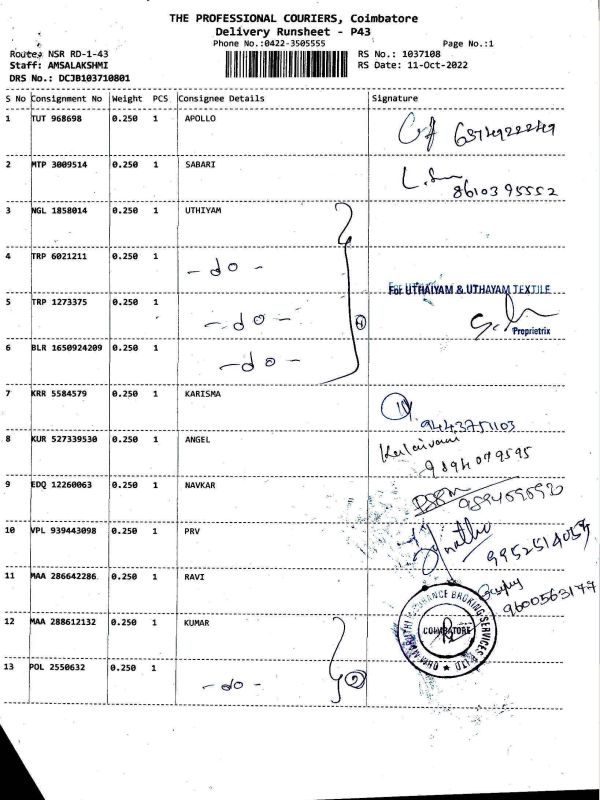 THE PROFESSIONAL COURIERS, Coimbatore
Delivery Runsheet - P43
Phone No.:0422-3505555 Page No.:1
Route: NSR RD-1-43 RS No.: 1037108
Staff: AMSALAKSHMI RS Date: 11-Oct-2022
DRS No.: DCJB103710801
S No Consignment No Weight PCS Consignee Details Signature
1 TUT 968698 0.250 1 APOLLO
2 MTP 3009514 0.250 1 SABARI
8610395552
3 NGL 1858014 0.250 1 UTHIYAM
4 TRP 6021211 0.250 1 -do-
For UTHAIYAM & UTHAYAM TEXTILE
5 TRP 1273375 0.250 1 -do- 4
Proprietrix
6 BLR 1650924209 0.250 1 -do-
7 KRR 5584579 0.250 1 KARISMA
9443751103
8 KUR 527339530 0.250 1 ANGEL
Kalaivani
9894079595
9 EDQ 12260063 0.250 1 NAVKAR
10 VPL 939443098 0.250 1 PRV
9952514057
11 MAA 286642286 0.250 1 RAVI
9600563177
12 MAA 288612132 0.250 1 KUMAR
COIMBATORE
13 POL 2550632 0.250 1 -do- 2